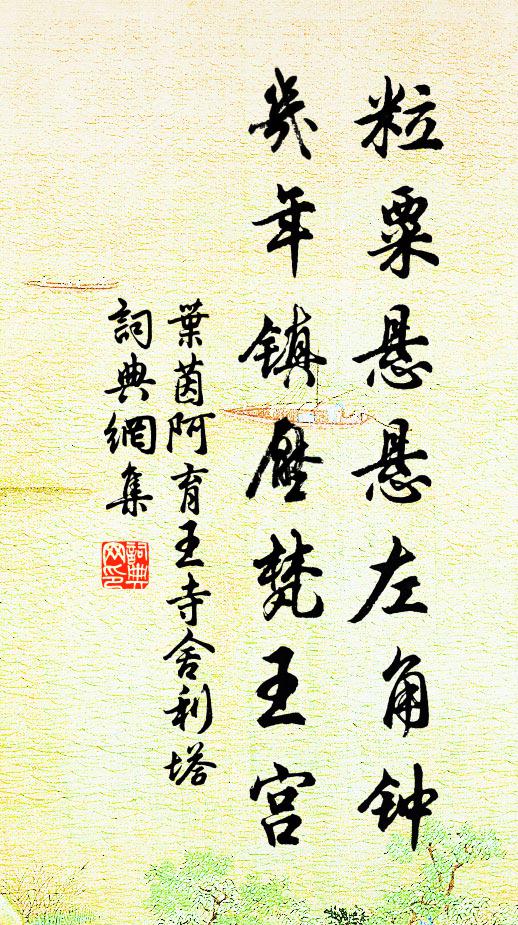 粒粟悬悬左角钟
几年镇压梵王宫
葉茵阿育王寺舍利塔
詞典網集
詞典网印